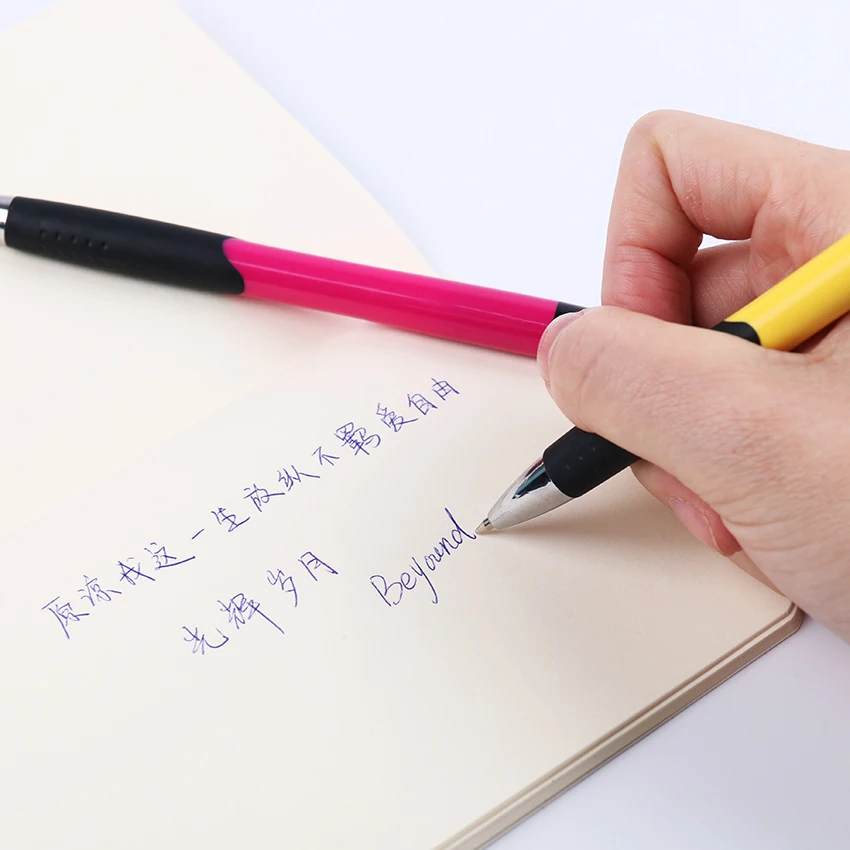 原谅我这一生放纵不羁爱自由
光辉岁月
Beyound